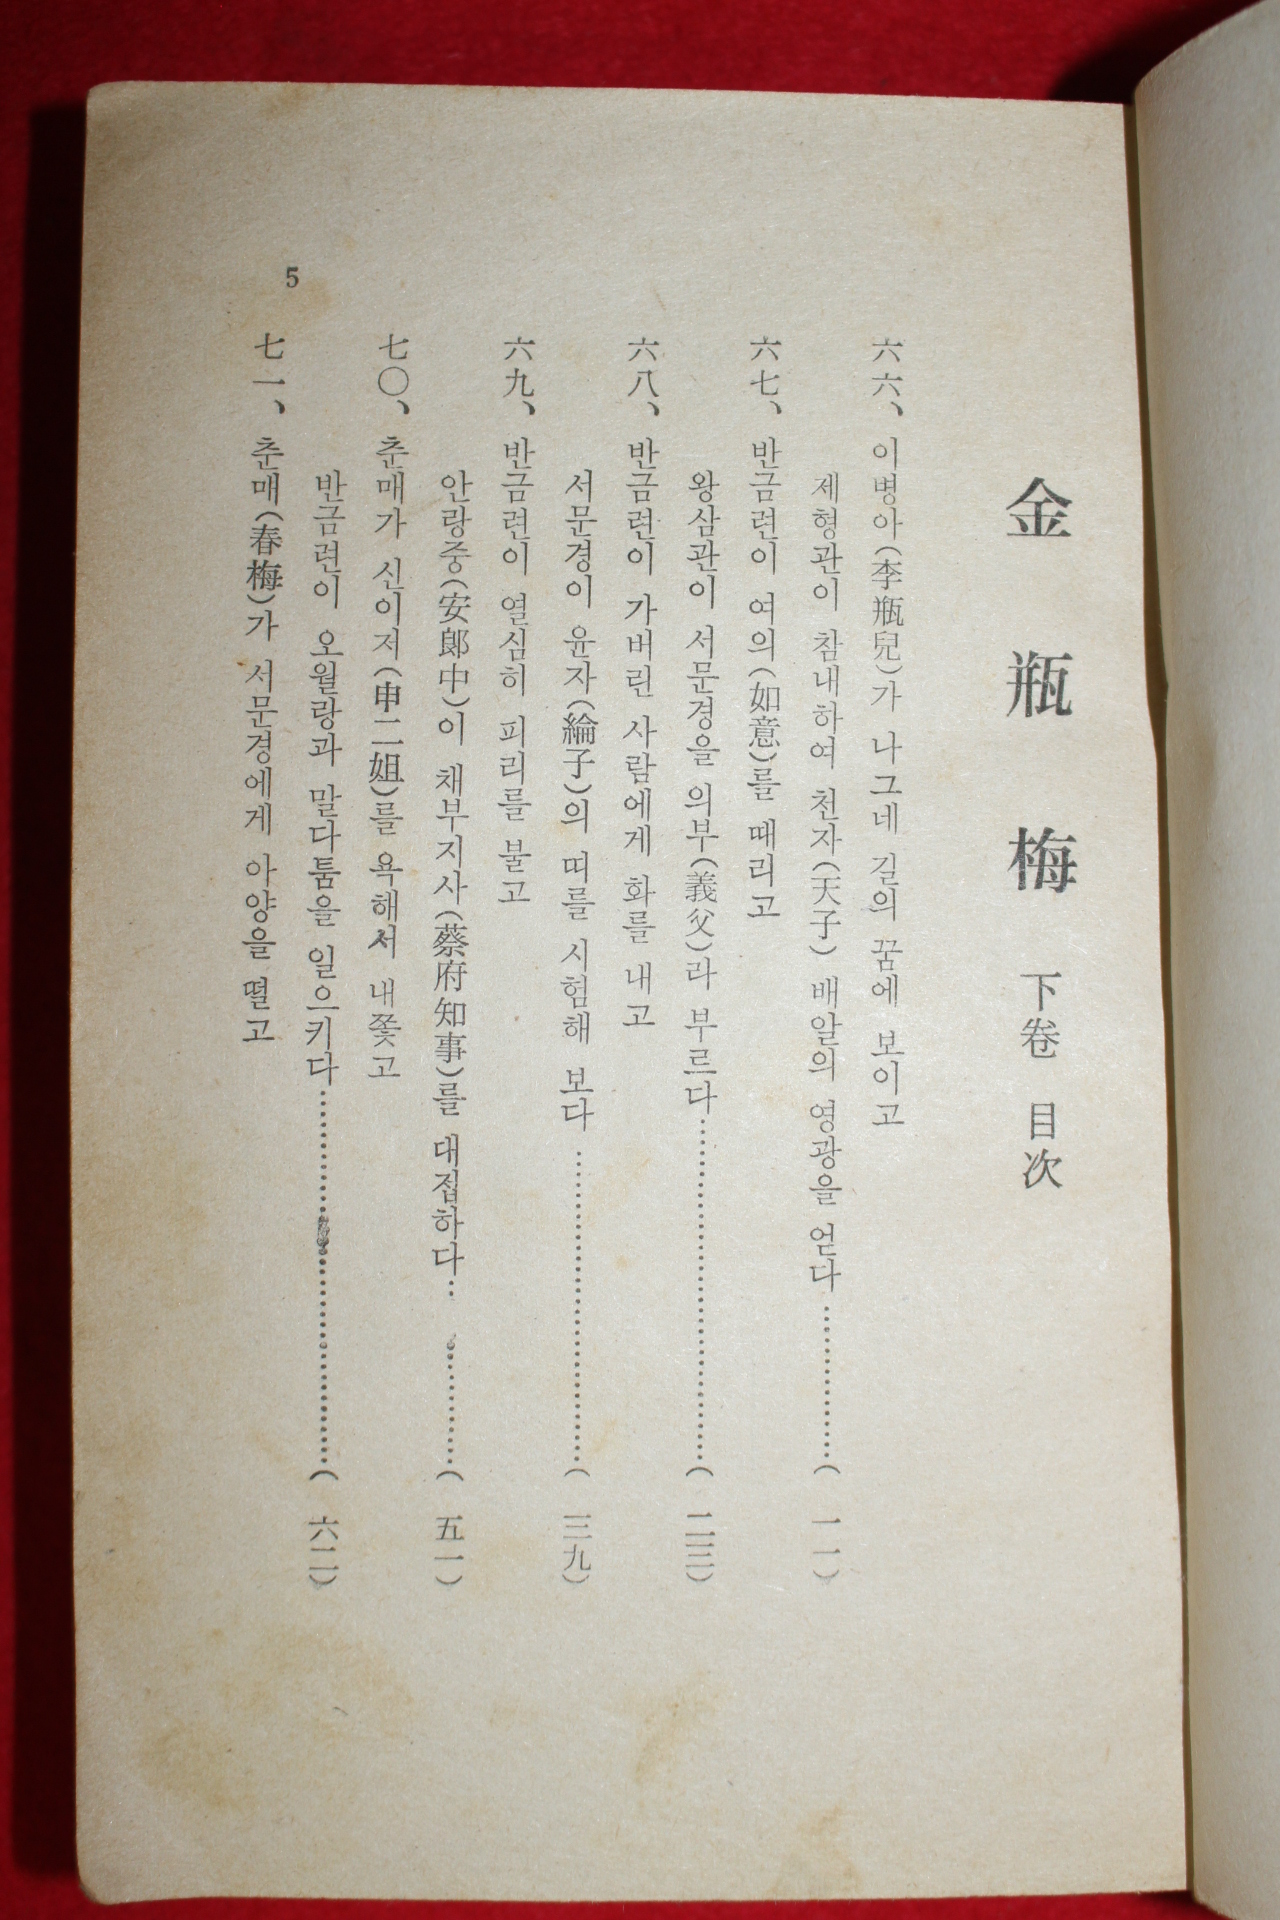 金瓶梅 下卷 目次
六六、이병아(李瓶兒)가 나그네 길의 꿈에 보이고
제형관이 참내하여 천자(天子) 배알의 영광을 얻다……………( 一一)
六七、반금련이 여의(如意)를 때리고
왕삼관이 서문경을 의부(義父)라 부르다……………………………( 二三)
六八、반금련이 가버린 사람에게 화를 내고
서문경이 윤자(綸子)의 띠를 시험해 보다 …………………………( 三九)
六九、반금련이 열심히 피리를 불고
안랑중(安郞中)이 채부지사(蔡府知事)를 대접하다… …………( 五一)
七〇、춘매가 신이저(申二姐)를 욕해서 내쫓고
반금련이 오월랑과 말다툼을 일으키다………………………………( 六二)
七一、춘매(春梅)가 서문경에게 아양을 떨고
5